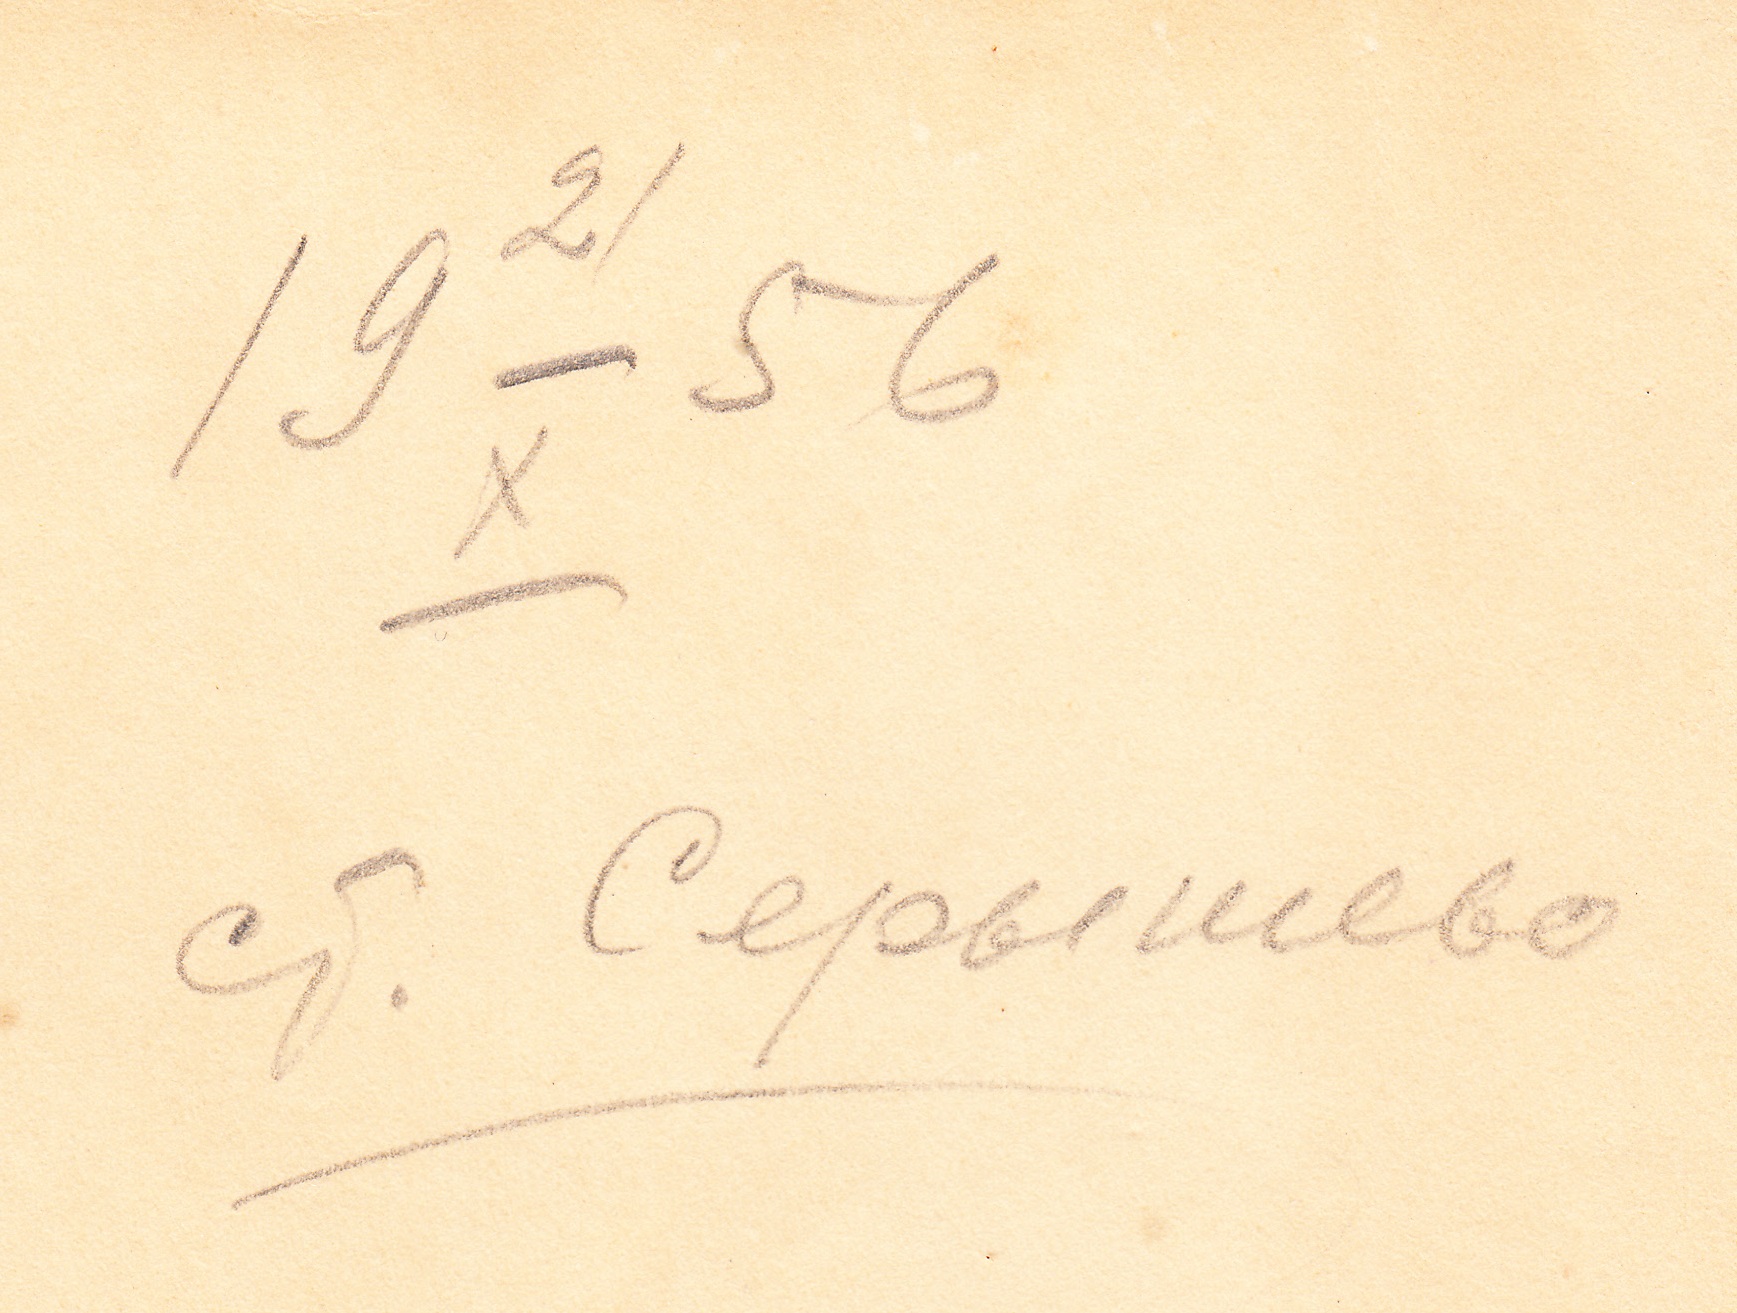 19 21/X 56
ст. Серышево